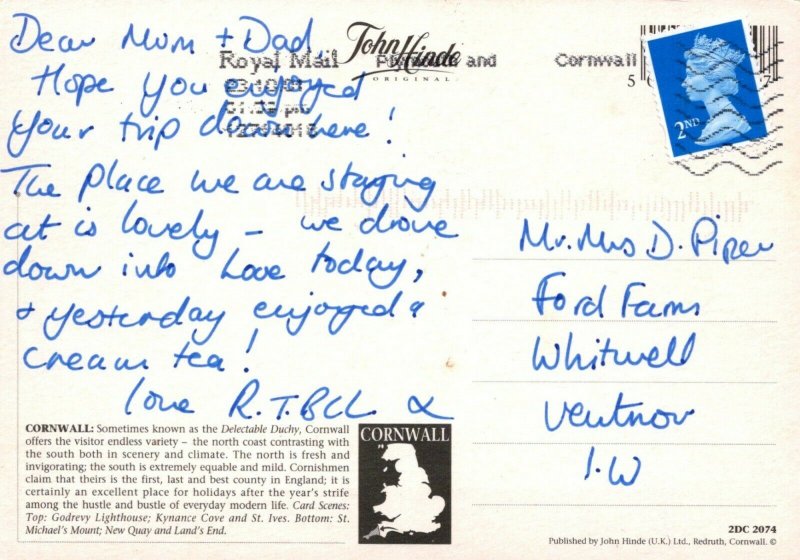 Dear Mum + Dad
Hope you enjoyed
your trip down here!
The place we are staying
at is lovely – we drove
down into Looe today,
+ yesterday enjoyed a
cream tea!
love R.T.B
John Hinde
ORIGINAL
Royal Mail
Plymouth and
Cornwall
2ND
5
7
Mr. Mrs D. Piper
Ford Farm
Whitwell
Ventnor
I.W
CORNWALL: Sometimes known as the Delectable Duchy, Cornwall
offers the visitor endless variety – the north coast contrasting with
the south both in scenery and climate. The north is fresh and
invigorating; the south is extremely equable and mild. Cornishmen
claim that theirs is the first, last and best county in England; it is
certainly an excellent place for holidays after the year's strife
among the hustle and bustle of everyday modern life. Card Scenes:
Top: Godrevy Lighthouse; Kynance Cove and St. Ives. Bottom: St.
Michael's Mount; New Quay and Land's End.
CORNWALL
2DC 2074
Published by John Hinde (U.K.) Ltd., Redruth, Cornwall. ©